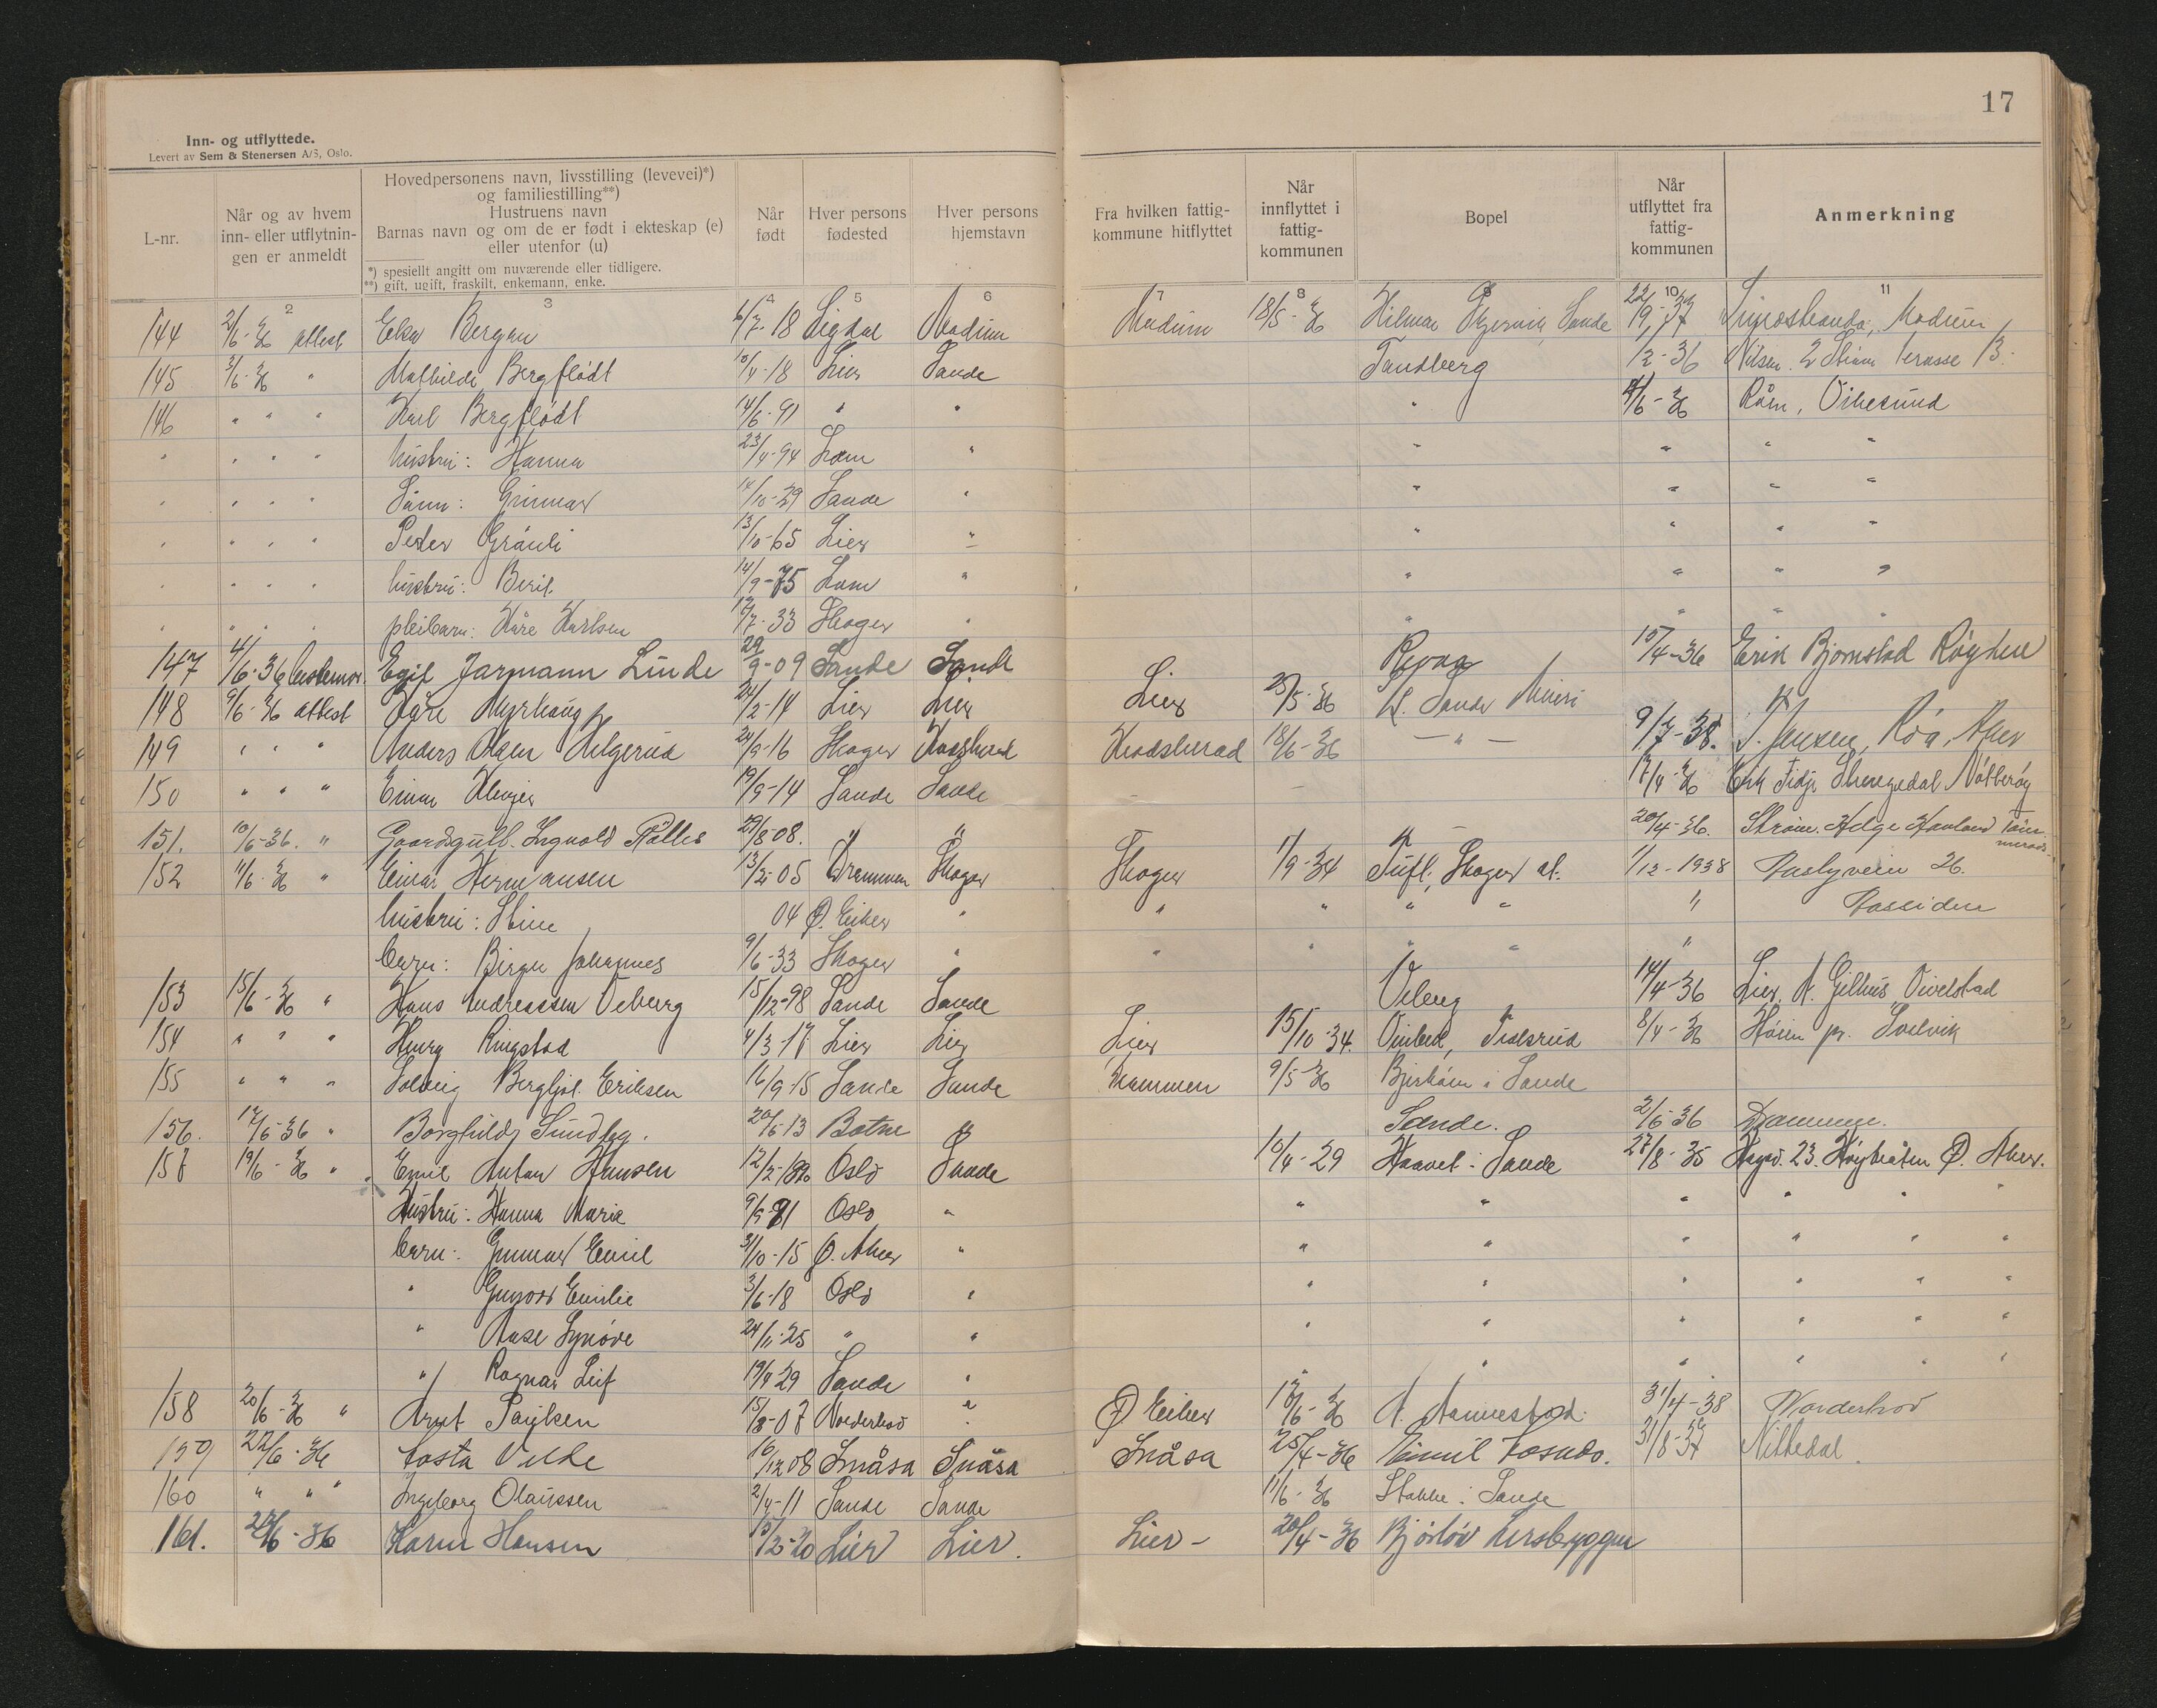 17
Inn- og utflyttede.
Levert av Sem & Stenersen A/S, Oslo.
L-nr.
Når og av hvem inn- eller utflytnin-gen er anmeldt
Hovedpersonens navn, livsstilling (levevei)*) og familiestilling**)
Hustruens navn
Barnas navn og om de er født i ekteskap (e) eller utenfor (u)
*) spesiellt angitt om nuværende eller tidligere.
**) gift, ugift, fraskilt, enkemann, enke.
Når født
Hver persons fødested
Hver persons hjemstavn
Fra hvilken fattig-kommune hitflyttet
Når innflyttet i fattig-kommunen
Bopel
Når utflyttet fra fattig-kommunen
Anmerkning
2 3 4 5 6 7 8 9 10 11
144 2/6-36 attest Elsa Bergan 6/7-18 Sigdal Modum Modum 18/5-36 Hilmar Sande Modum
145 2/6-36 " Mathilde Bergflødt 10/4-18 Lier Sande Sandberg 12-36 Nilsen terasse 13.
146 " " " Karl Bergflødt 14/6-91 " " " 4/6-36 Råen, Vikesund
" " " " hustru: Hanna 23/4-94 Lom " " " " "
" " " " Sønn: Gunnar 14/10-29 Sande " " " " "
" " " " Peder Grønli 13/10-65 Lier " " " " "
" " " " hustru: Berit 14/9-75 Lom " " " " "
" " " " pleibarn: Kåre Karlsen 12/7-33 Skoger " " " " "
147 4/6-36 Egil Jarmann Linde 29/9-09 Sande Sande Revaa 15/4-36 Erik Bjørnstad Røyken
148 9/6-36 attest Kåre Myrhaug 24/2-14 Lier Lier Lier 25/5-36 Sande Meieri
149 " " " Anders Olsen Helgerud 24/9-16 Skoger Krødsherad Krødsherad 18/6-36 — " — 9/7-38. J. Jensen, Røa, Aker
150 " " " Einar Klevjer 19/9-14 Sande Sande 17/4-36 Erik Nøtterøy
151. 10/6-36. " Gaardsgutt. Ingvald 29/8 08. " " 20/4-36. Strøm. Helge Havland
152 11/6-36 " Einar Hermansen 13/2-05 Drammen Skoger Skoger 1/9-34 Tufte, Skoger al. 1/12-1938 26.
hustru: Stine 04 Ø. Eiker " " " " " "
barn: Birger Johannes 9/6-33 Skoger " " " " " "
153 15/6-36 " Hans Andreassen Veberg 15/12-98 Sande Sande Veberg 14/4-36 Lier, A. Gilhus, Vivelstad
154 " " " Henry Ringstad 4/3-17 Lier Lier Lier 15/10-34. 8/4-36 Høien pr. Svelvik
155 " " " Solveig Bergljot Eriksen 16/9-15 Sande Sande Drammen 9/5-36 i Sande
156. 17/6-36 " Borghild Sundby. 20/5-13 Botne " Sande. 2/6-36 Drammen.
157 19/6-36 " Emil Anton Hansen Oslo Sande 10/4-29 Haavet i Sande 27/8-35 23. Ø. Aker.
Hustru: Hanna Marie 9/9-81 Oslo " " " " " " "
barn: Gunnar Emil 3/10-15 Ø. Aker " " " " " " "
" Gunvor Emilie 3/6-18 Oslo " " " " " " "
" Aase Synøve 24/11-25 " " " " " " " "
" Ragnar Leif 19/4 29 Sande " " " " " " "
158 20/6-36 " Arnt Paulsen 15/8-07 Norderhov " Ø Eiker 17/6-36 31/4-38 Norderhov
159 22/6-36 16/12 08 Snåsa Snåsa Snåsa 25/4-36 31/8-37 Nittedal.
160 " " " Ingeborg Olaussen 2/4-11 Sande Sande 11/6-36 Stakke i Sande
161. 22/6-36 Karen Hansen 15/12-20 Lier Lier. Lier - 20/4-36